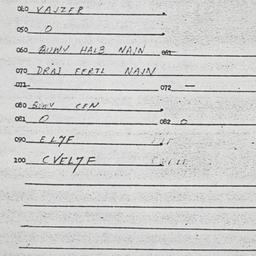 040 VAJZER
050 O
060 BUWV HALB NAJN 061
070 DRAJ FERTL NAJN
071 072 —
080 BUWV CEN
081 O 082 O
090 ELYF
100 CVELYF